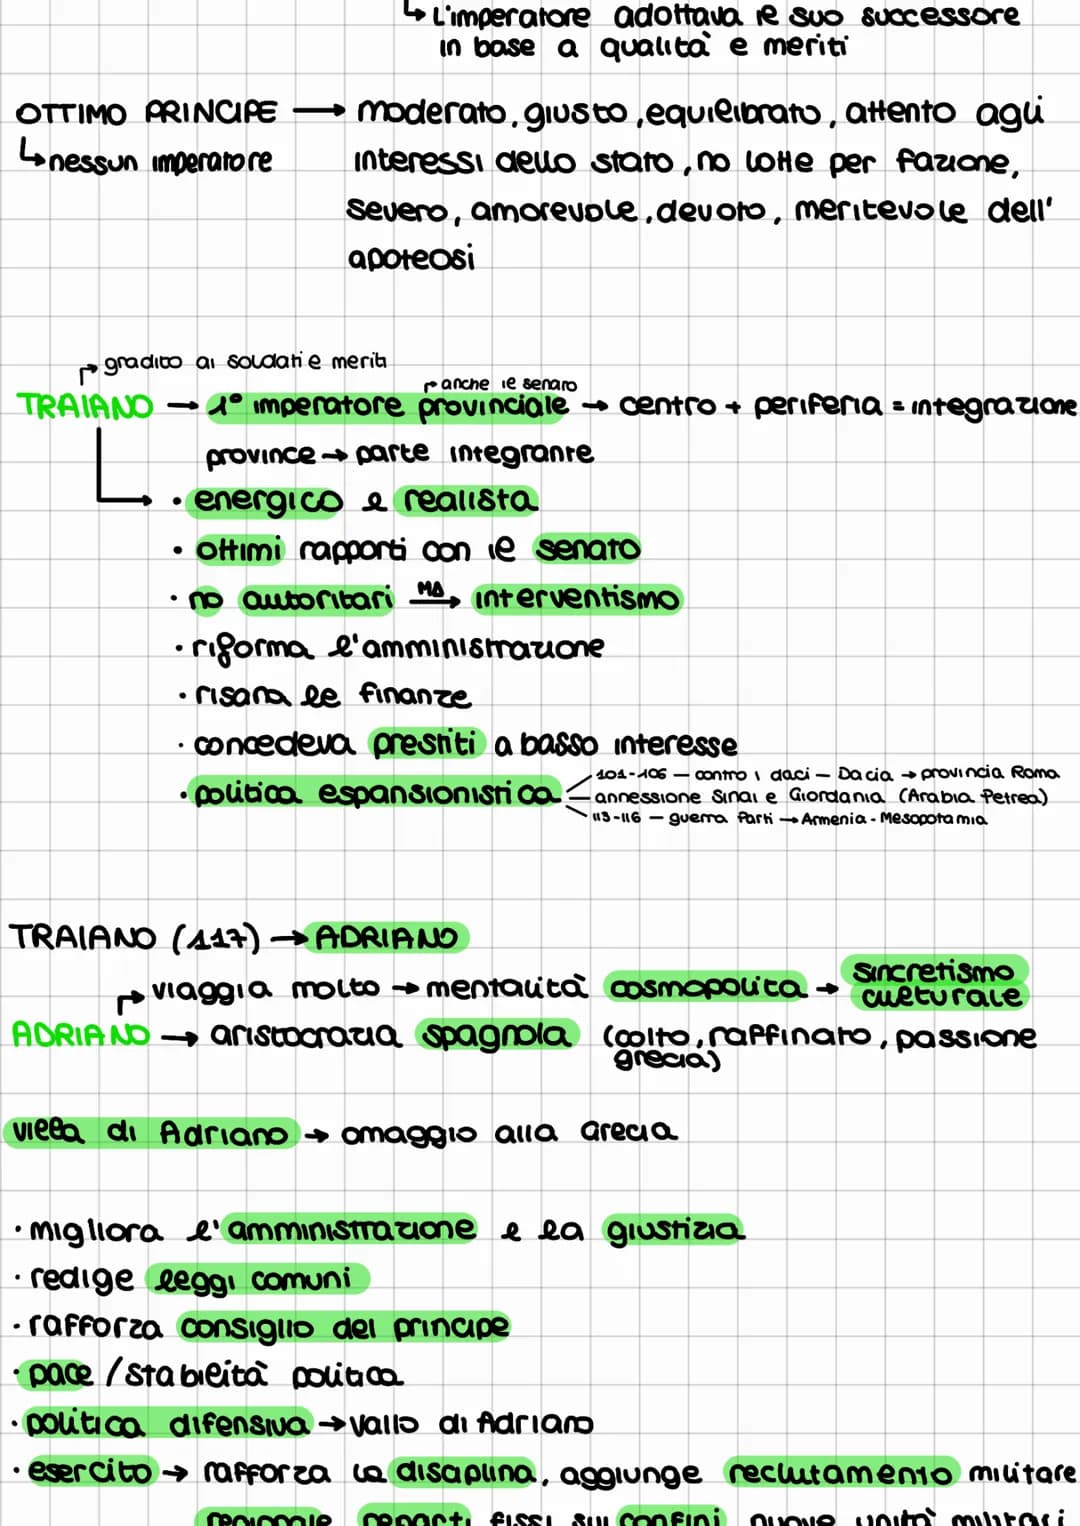 ↳ L'imperatore adottava il suo successore
in base a qualità e meriti
OTTIMO PRINCIPE → moderato, giusto, equilibrato, attento agli
↳ nessun imperatore interessi dello stato, no lotte per fazione,
severo, amorevole, devoto, meritevole dell'
apoteosi
gradito ai soldati e meriti
anche il senato
TRAIANO → 1° imperatore provinciale → centro + periferia = integrazione
province → parte integrante
• energico e realista
• ottimi rapporti con il senato
• no autoritari MA → interventismo
• riforma l'amministrazione
• risana le finanze
• concedeva prestiti a basso interesse
• politica espansionistica
101-106 — contro i daci — Dacia → provincia Roma
annessione Sinai e Giordania (Arabia Petrea)
113-116 — guerra Parti → Armenia - Mesopotamia
TRAIANO (117) → ADRIANO
viaggia molto → mentalità cosmopolita → sincretismo
culturale
ADRIANO → aristocrazia spagnola (colto, raffinato, passione
grecia)
villa di Adriano → omaggio alla Grecia
• migliora l'amministrazione e la giustizia
• redige leggi comuni
• rafforza consiglio del principe
• pace / stabilità politica
• politica difensiva → vallo di Adriano
• esercito → rafforza la disciplina, aggiunge reclutamento militare
regionale reparti fissi sui confini nuove unità militari